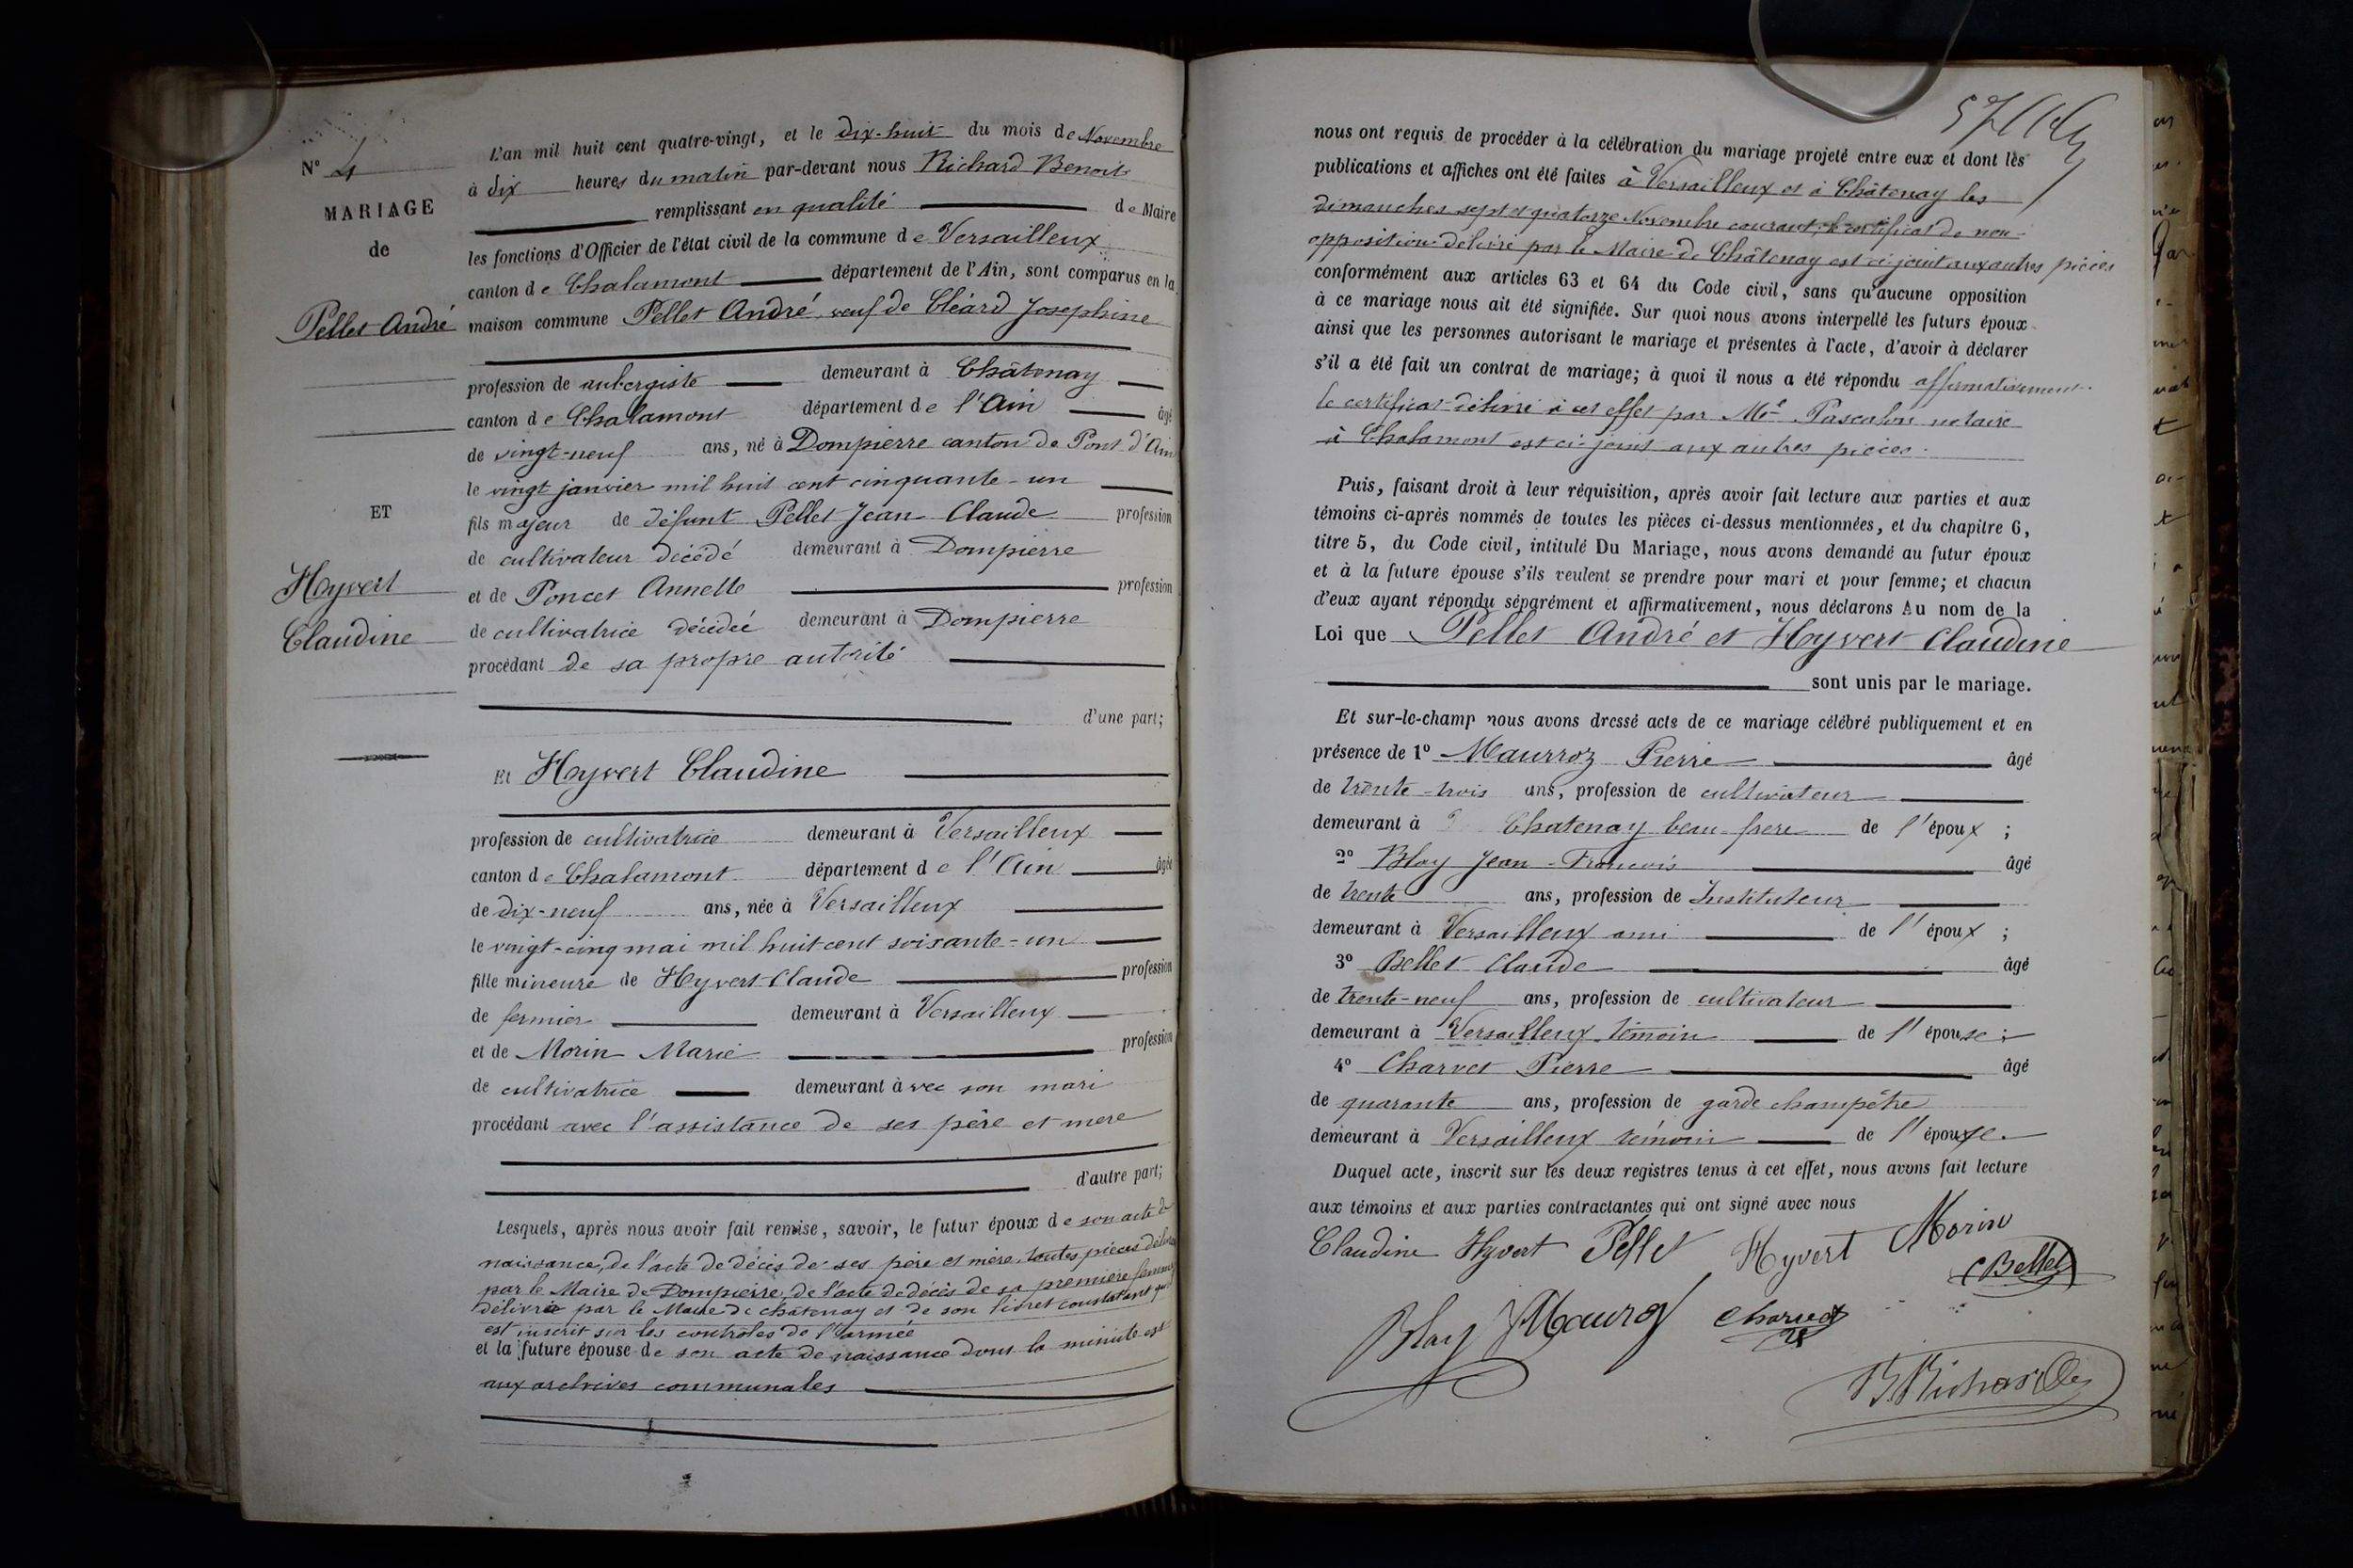 N° 4
MARIAGE
de
Pellet André
ET
Hyvert
Claudine
L'an mil huit cent quatre-vingt, et le dix-huit du mois de Novembre
à dix heures du matin par-devant nous Richard Benoit
remplissant en qualité de Maire
les fonctions d'Officier de l'état civil de la commune de Versailleux
canton de Chalamont département de l'Ain, sont comparus en la
maison commune Pellet André, veuf de Cléard Josephine
profession de aubergiste demeurant à Châtenay
canton de Chalamont département de l'Ain âgé
de vingt-neuf ans, né à Dompierre canton de Pont d'Ain
le vingt janvier mil huit cent cinquante-un
fils majeur de défunt Pellet Jean Claude profession
de cultivateur décédé demeurant à Dompierre
et de Poncet Annette profession
de cultivatrice décédée demeurant à Dompierre
procédant de sa propre autorité
d'une part;
Et Hyvert Claudine
profession de cultivatrice demeurant à Versailleux
canton de Chalamont département de l'Ain âgée
de dix-neuf ans, née à Versailleux
le vingt-cinq mai mil huit-cent soixante-un
fille mineure de Hyvert Claude profession
de fermier demeurant à Versailleux
et de Morin Marie profession
de cultivatrice demeurant avec son mari
procédant avec l'assistance de ses père et mere
d'autre part;
Lesquels, après nous avoir fait remise, savoir, le futur époux de son acte de
naissance, de l'acte de décès de ses père et mère, toutes pièces
par le Maire de Dompierre, de l'acte de décès de sa première femme
délivrée par le Maire de chatenay et de son livret constatant qu'il
est inscrit sur les controles de l'armée
et la future épouse de son acte de naissance dont la minute est
aux archives communales
nous ont requis de procéder à la célébration du mariage projeté entre eux et dont les
publications et affiches ont été faites à Versailleux et à Châtenay les
dimanches sept et quatorze Novembre courant, le certificat de non-
opposition délivré par le Maire de Châtenay est ci-joint aux autres pièces
conformément aux articles 63 et 64 du Code civil, sans qu'aucune opposition
à ce mariage nous ait été signifiée. Sur quoi nous avons interpellé les futurs époux
ainsi que les personnes autorisant le mariage et présentes à l'acte, d'avoir à déclarer
s'il a été fait un contrat de mariage; à quoi il nous a été répondu affirmativement
le certificat délivré à cet effet par Me Pascalon notaire
à Chalamont est ci-joint aux autres pièces.
Puis, faisant droit à leur réquisition, après avoir fait lecture aux parties et aux
témoins ci-après nommés de toutes les pièces ci-dessus mentionnées, et du chapitre 6,
titre 5, du Code civil, intitulé Du Mariage, nous avons demandé au futur époux
et à la future épouse s'ils veulent se prendre pour mari et pour femme; et chacun
d'eux ayant répondu séparément et affirmativement, nous déclarons Au nom de la
Loi que Pellet André et Hyvert Claudine
sont unis par le mariage.
Et sur-le-champ nous avons dressé acte de ce mariage célébré publiquement et en
présence de 1° Maurroz Pierre âgé
de trente-trois ans, profession de cultivateur
demeurant à Chatenay beau frere de l'époux ;
2° Blay Jean-François âgé
de trente ans, profession de Instituteur
demeurant à Versailleux ami de l'époux ;
3° Bellet Claude âgé
de trente-neuf ans, profession de cultivateur
demeurant à Versailleux témoin de l'épouse ;
4° Charvet Pierre âgé
de quarante ans, profession de garde champêtre
demeurant à Versailleux témoin de l'épouse.
Duquel acte, inscrit sur les deux registres tenus à cet effet, nous avons fait lecture
aux témoins et aux parties contractantes qui ont signé avec nous
Claudine Hyvert Pellet Hyvert Morin
C Bellet
Blay Mauroz Charvet
B. Richard